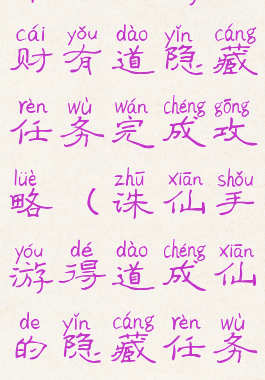 cái yǒu dào yǐn cáng
财有道隐藏
rèn wù wán chéng gōng
任务完成攻
lüè zhū xiān shǒu
略（诛仙手
yóu dé dào chéng xiān
游得道成仙
de yǐn cáng rèn wù
的隐藏任务